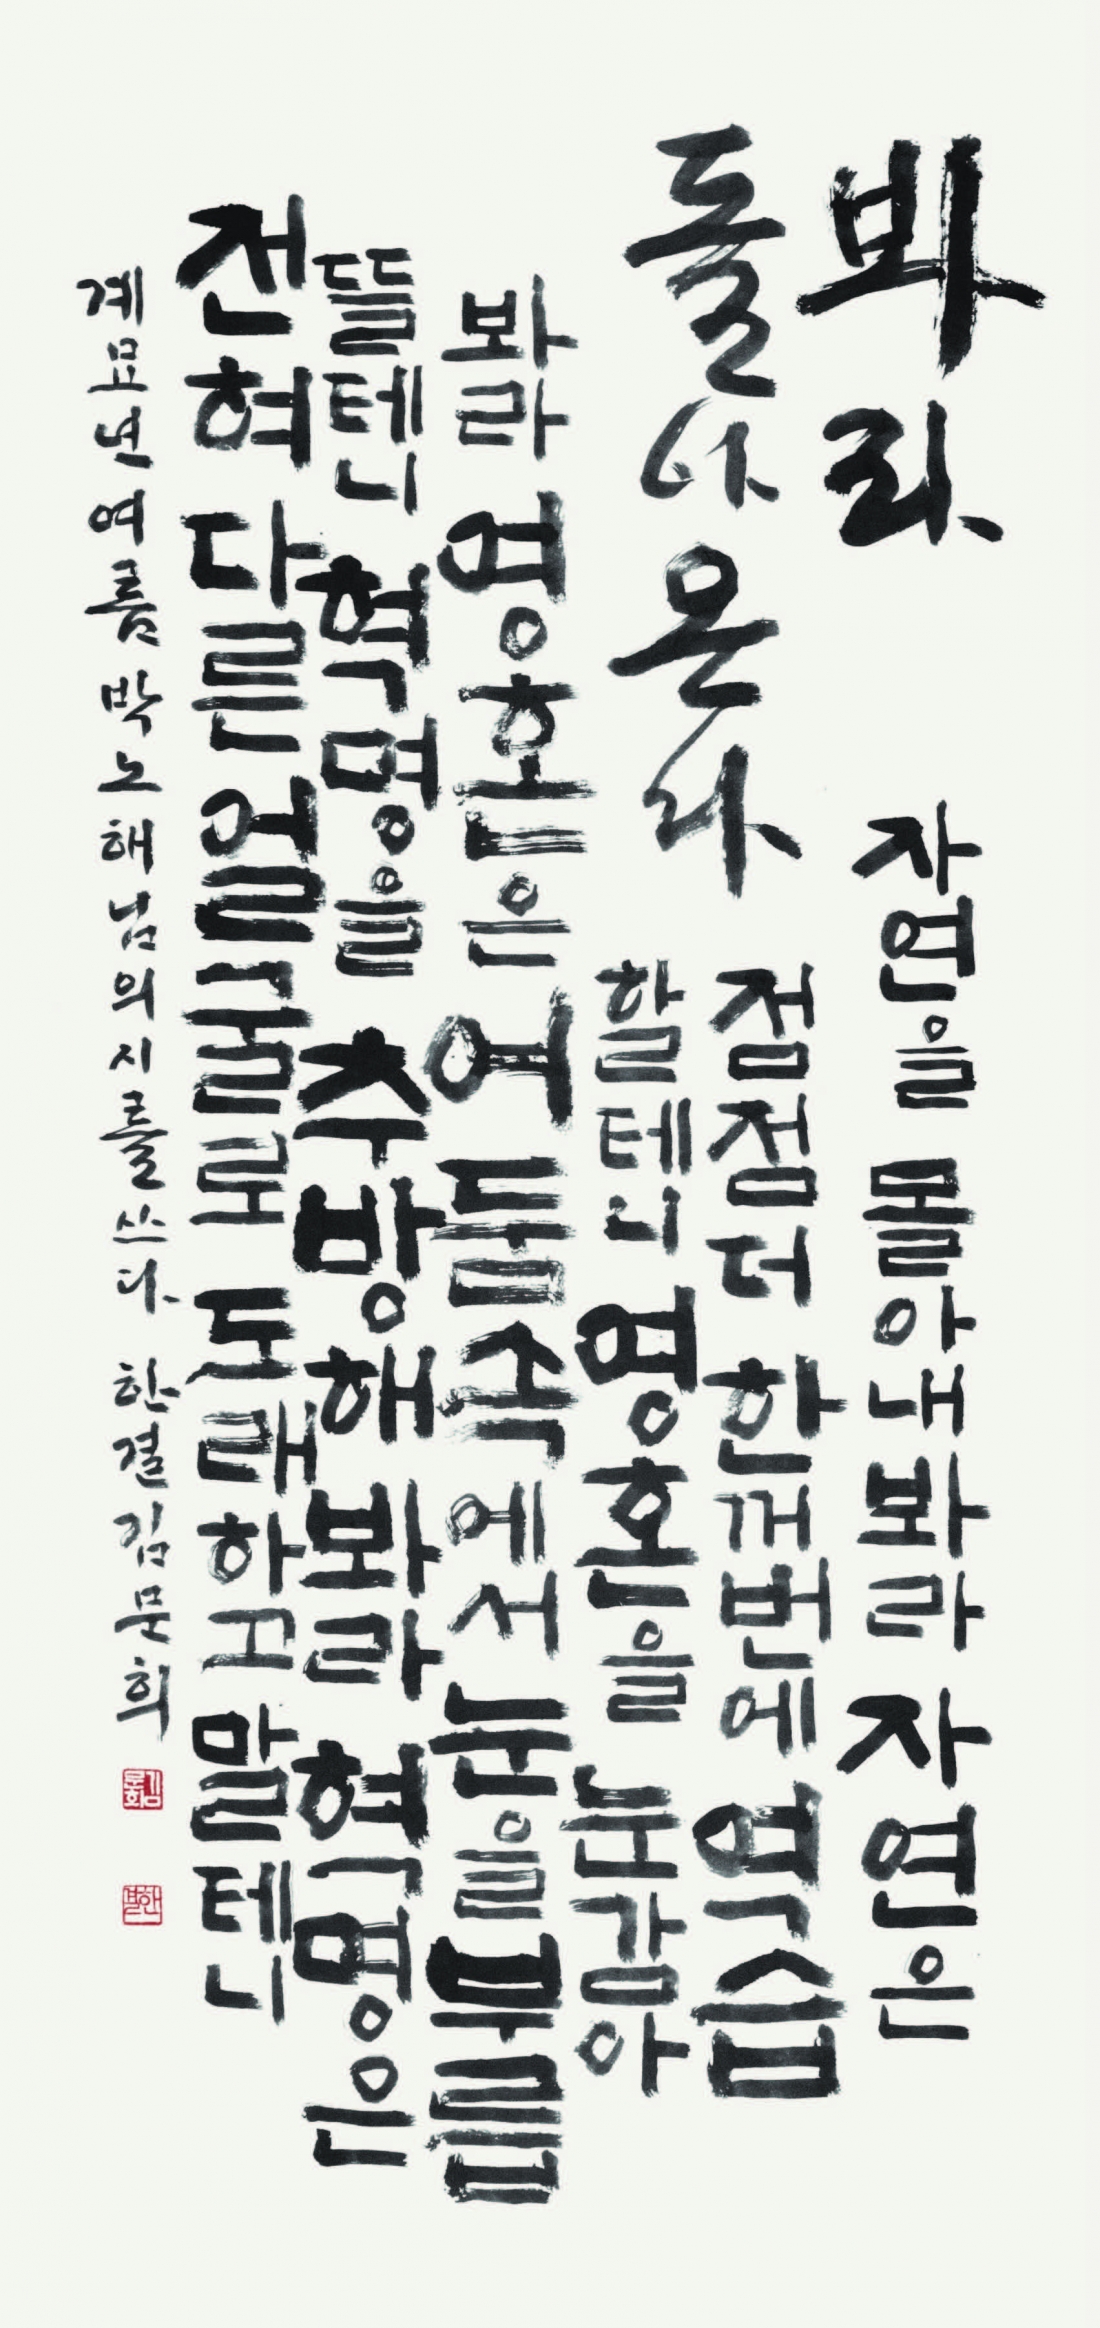 봐라
돌아온다
자연을 몰아내봐라 자연은
점점 더 한꺼번에 역습
할테니 영혼을 눈감아
봐라 영혼은 어둠속에서 눈을 부릅
뜰테니 혁명을 추방해봐라 혁명은
전혀 다른 얼굴로 도래하고 말테니
계묘년 여름 박노해님의 시를 쓰다 한결 김문희